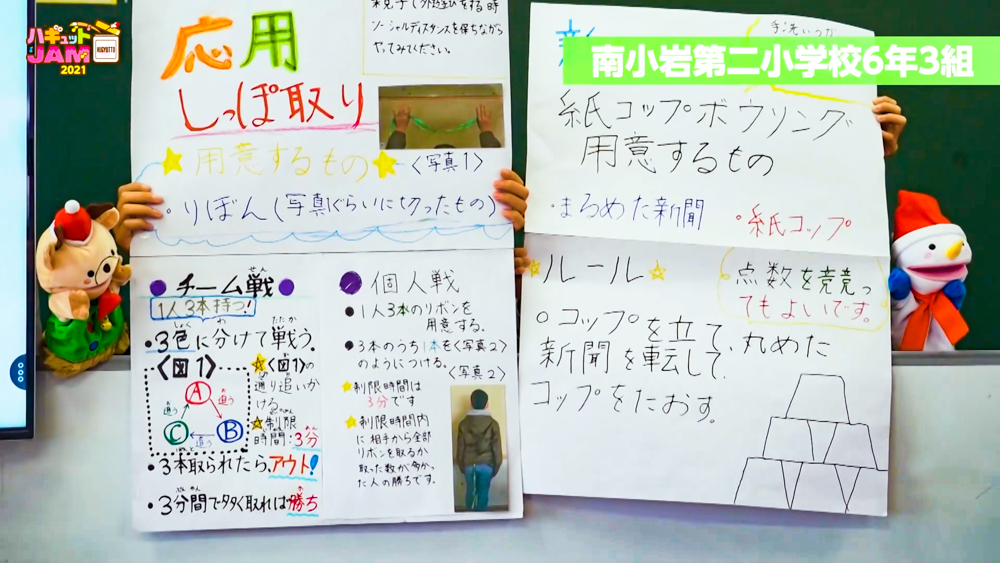 ハギュットJAM
HUGYUTTO
2021
南小岩第二小学校6年3組
応用
ソーシャルディスタンスを保ちながら
やってみてください。
しっぽ取り
用意するもの
〈写真1〉
・りぼん(写真ぐらいに切ったもの)
●チーム戦●
せん
1人3本持つ!
・3色に分けて戦う。
しょく わ たたか
〈図1〉
A
B
C
追う
追う
追う
〈図1〉の
通り追いか
ける。
制限
時間:3分
・3本取られたら、アウト!
・3分間で多く取れば勝ち
●個人戦
●1人3本のリボンを
用意する。
●3本のうち1本を〈写真2〉
のようにつける。
〈写真2〉
制限時間は
3分です
制限時間内
に相手から全部
リボンを取るか
取った数が多かっ
た人の勝ちです。
紙コップボウリング
用意するもの
・まるめた新聞
・紙コップ
ルール
点数を競っ
てもよいです。
○コップを立て、丸めた
新聞を転して、
コップをたおす。